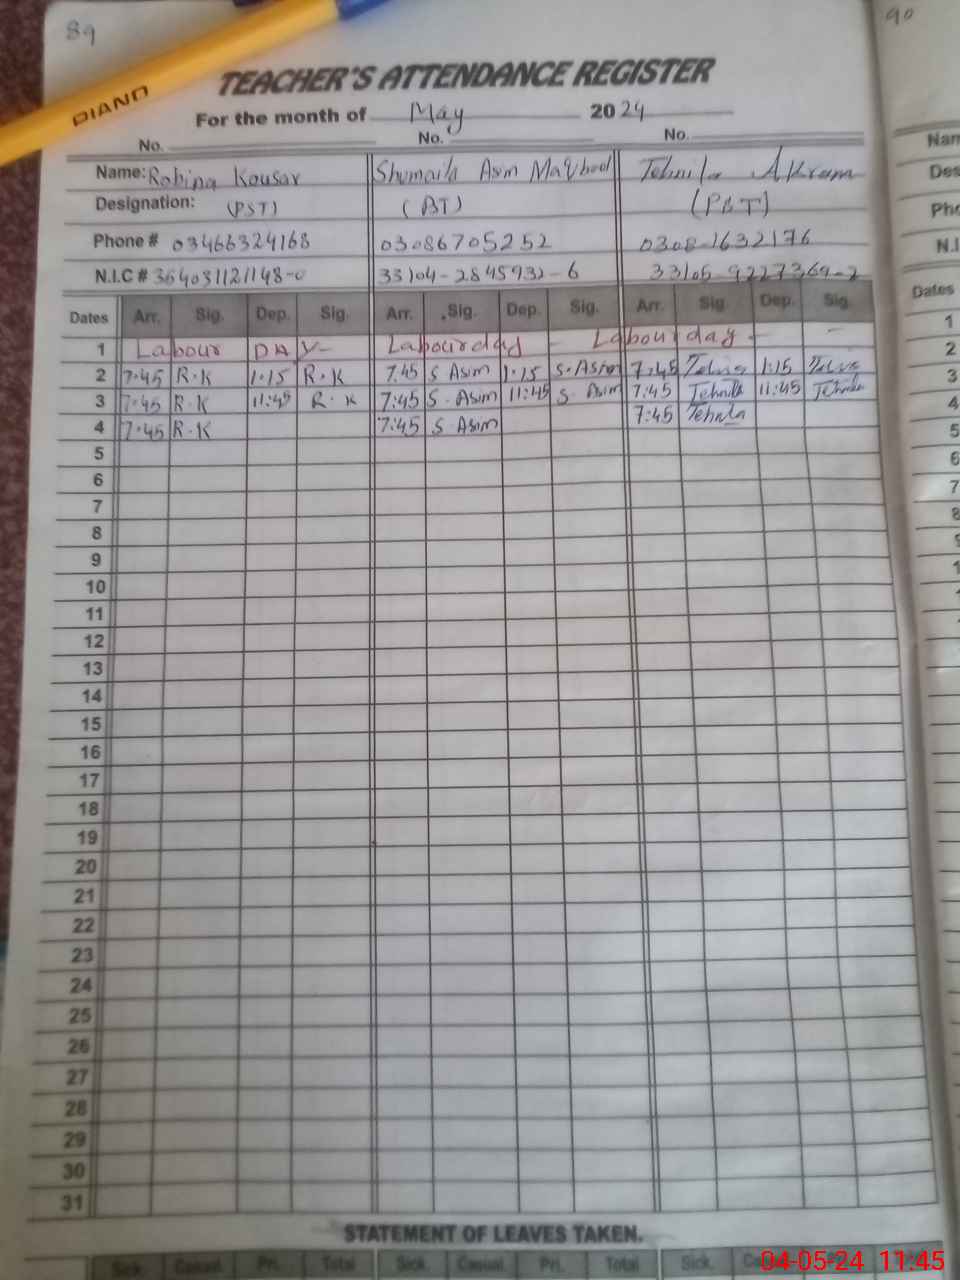 89
90
PIANO
TEACHER'S ATTENDANCE REGISTER
For the month of May 2024
No. No. No.
Name: Robina Kousar Shumaila Asim Maqbool Tehnila Akram
Designation: (PST) (PST)
Phone # 03466324168 03086705252 0308-1632176
N.I.C # 3640311211148-0 33104-2845932-6 33105-9227369-2
Dates Arr. Sig. Dep. Sig. Arr. Sig. Dep. Sig. Arr. Sig. Dep. Sig.
1 Labour DAY- Labourday - Labourday - -
2 7:45 R.K 1:15 R.K 7:45 S Asim 1:15 S.Asim 7:45 1:15
3 7:45 R.K 11:45 R.K 7:45 S.Asim 11:45 S Asim 7:45 Tehnila 11:45 Tehnila
4 7:45 R.K 7:45 S Asim 7:45 Tehnila
5
6
7
8
9
10
11
12
13
14
15
16
17
18
19
20
21
22
23
24
25
26
27
28
29
30
31
STATEMENT OF LEAVES TAKEN.
Sick. Casual. Pri. Total Sick. Casual. Pri. Total Sick.
Dates
1
2
3
4
5
6
7
8
04-05-24 11:45